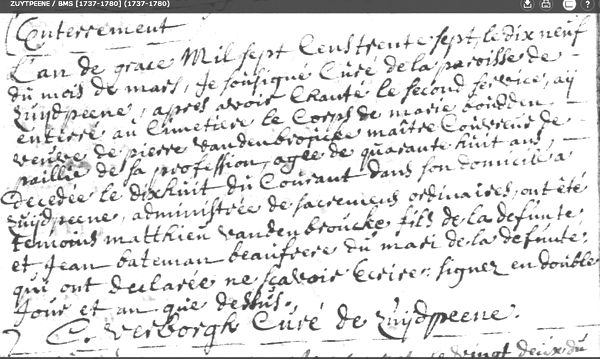 ZUYTPEENE / BMS [1737-1780] (1737-1780)
Enterrement
L'an de grace Mil sept Cens trente sept, le dix neuf
du mois de mars, Je soussigné Curé de la paroisse de
Zuijdpeene, après avoir Chanté le second service, aij
enterré au Cimetiere le Corps de marie
veuve de pierre Vandenbroucke maître Couvreur de
paillie de sa profession, agée de quarante huit ans,
Decedée le dixhuit du Courant dans son domicile a
Zuijdpeene, administrée de sacremens ordinaires, ont été
temoins matthieu Vandenbroucke fils de la defunte,
et Jean bateman beaufrere du mari de la defunte,
qui ont declarée ne scavoir Ecrire, signez en double
Jour et an que dessus.
C. Verborgh Curé de Zuijdpeene.
vingt deux du